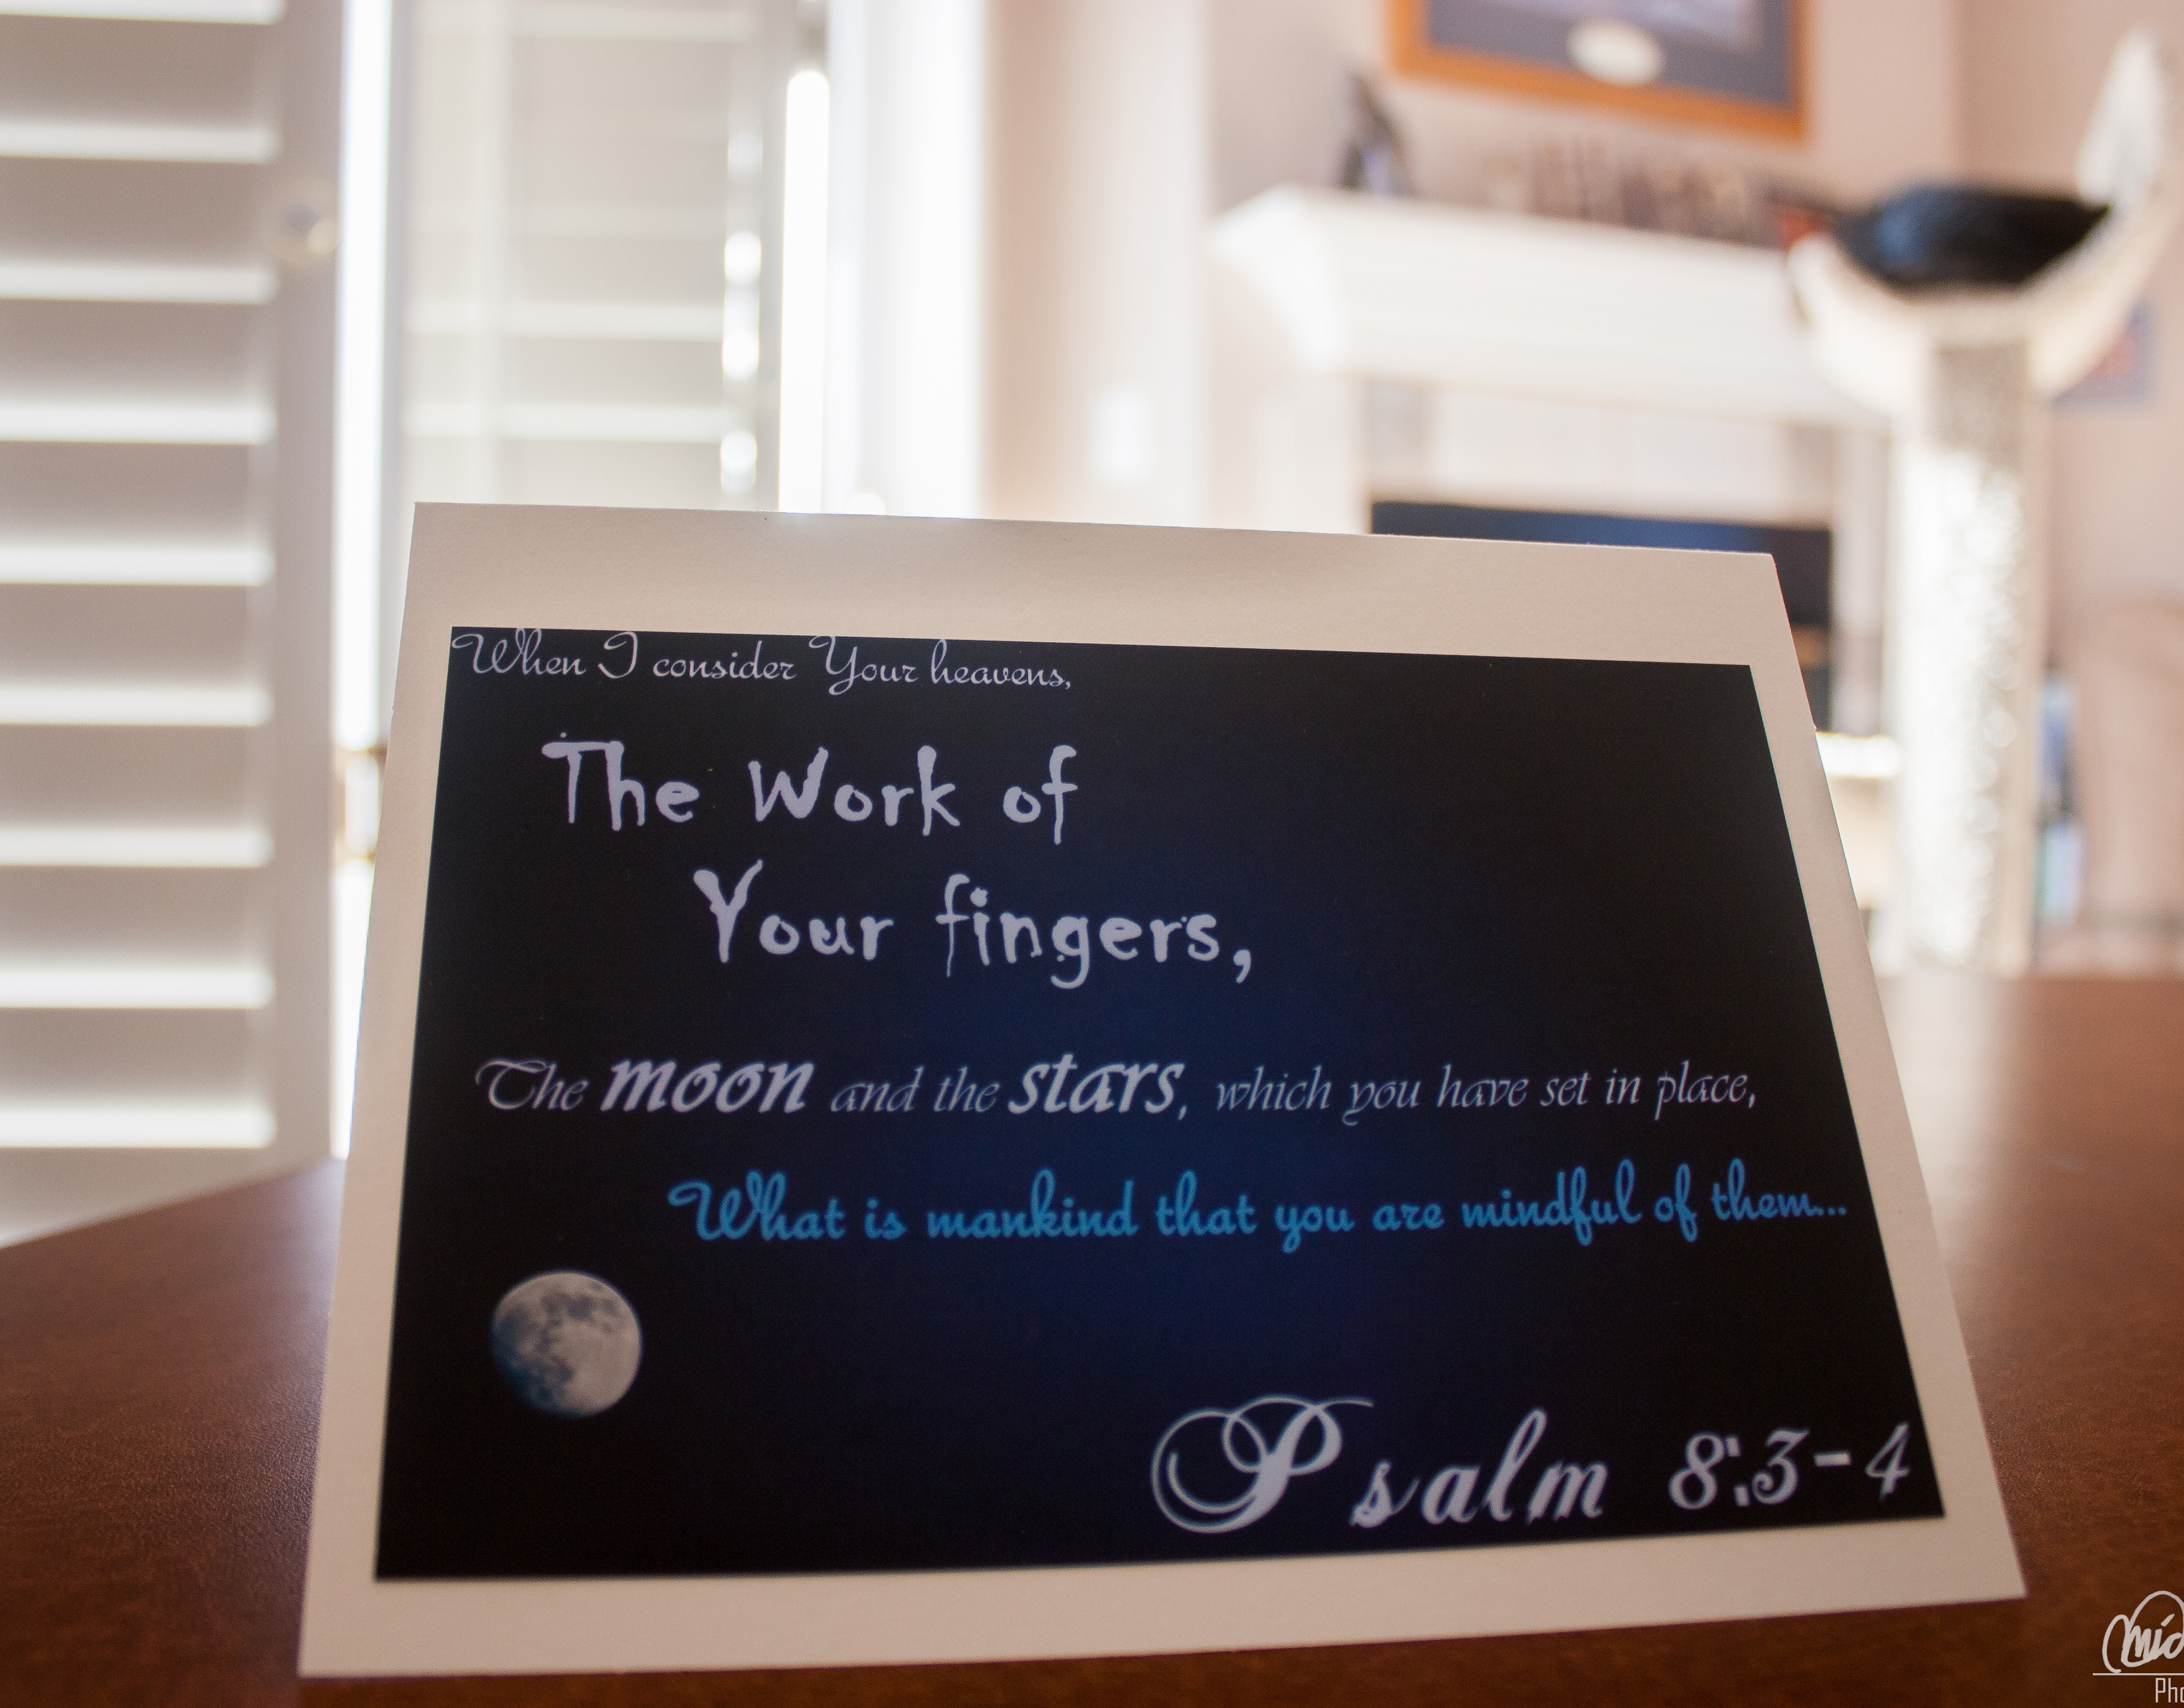 When I consider Your heavens,
The Work of
Your fingers,
The moon and the stars, which you have set in place,
What is mankind that you are mindful of them...
Psalm 8:3-4